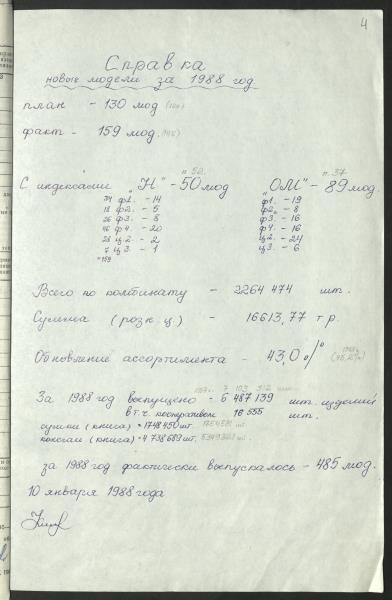 4
Справка
новые модели за 1988 год
план - 130 мод
факт - 159 мод.
п. 52. п. 37
С индексами "Н" - 50 мод "ОМ" - 89 мод
34 ф1. - 14 ф1. - 19
13 ф2. - 5 ф2. - 8
26 ф3. - 8 ф3. - 16
46 ф4. - 20 ф4. - 16
28 ц2. - 2 ц2. - 24
7 ц3. - 1 ц3. - 6
159
Всего по комбинату - 2264 474 шт.
Сумма (розн. ц.) - 16613,77 т.р.
Обновление ассортимента - 43,0 %
За 1988 год выпущено - 6 487 139 шт. изделий
в т.ч. кооперативом 16 555 шт.
сумки (книга) = 1748 450 шт.
кожгал (книга) = 4 738 689 шт.
за 1988 год фактически выпускалось - 485 мод.
10 января 1988 года